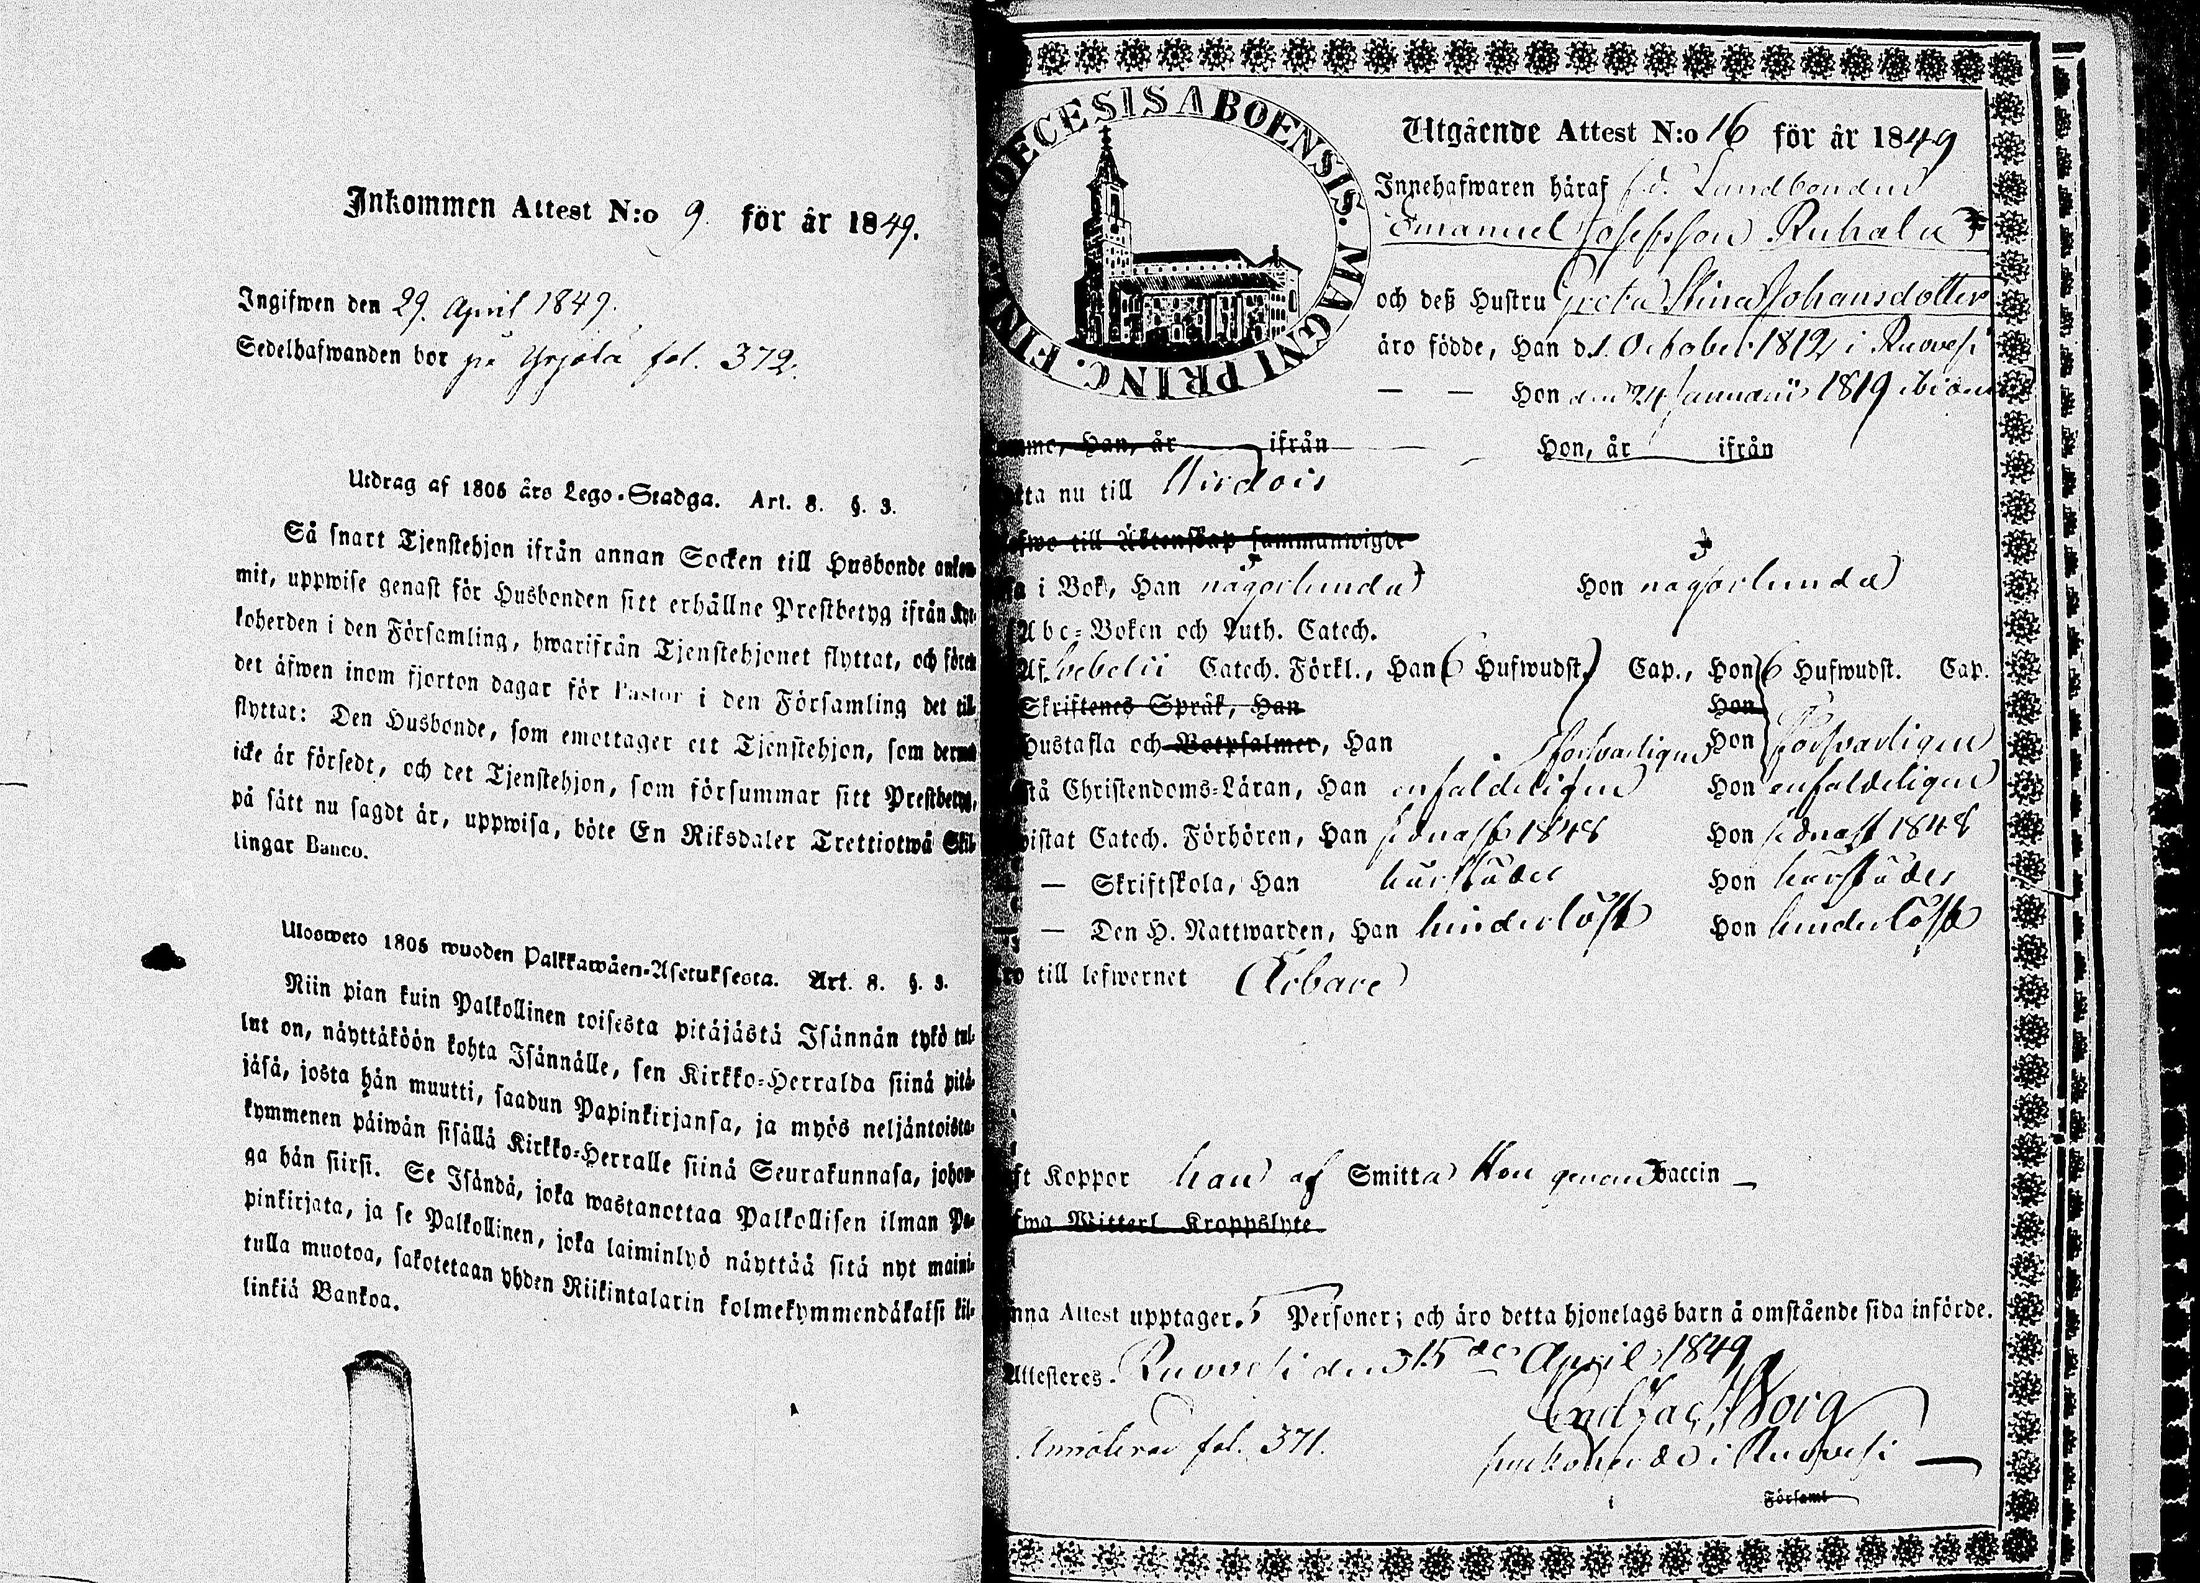 Inkommen Attest N:o 9. för år 1849.
Ingifwen den 29. April 1849.
Sedelhafwanden bor på Yrjölä fol. 372.
Utdrag af 1805 års Lego-Stadga. Art. 8. §. 3.
Så snart Tjenstehjon ifrån annan Socken till Husbonde ankom-
mit, uppwise genast för Husbonden sitt erhållne Prestbetyg ifrån Kyr-
koherden i den Församling, hwarifrån Tjenstehjonet flyttat, och förete
det äfwen inom fjorton dagar för Pastor i den Församling det till-
flyttat: Den Husbonde, som emottager ett Tjenstehjon, som dermed
icke är försedt, och det Tjenstehjon, som försummar sitt Prestbetyg,
på sätt nu sagdt är, uppwisa, böte En Riksdaler Trettiotwå Skil-
lingar Banco.
Ulosweto 1805 wuoden Palkkawäen-Asetuksesta. Art. 8. §. 3.
Niin pian kuin Palkollinen toisesta pitäjästä Isännän tykö tul-
lut on, näyttäköön kohta Isännälle, sen Kirkko-Herralda siinä pitä-
jäsä, josta hän muutti, saadun Papinkirjansa, ja myös neljäntoista-
kymmenen päiwän sisällä Kirkko-Herralle siinä Seurakunnasa, johon-
ga hän siirsi. Se Isändä, joka wastanottaa Palkollisen ilman Pa-
pinkirjata, ja se Palkollinen, joka laiminlyö näyttää sitä nyt maini-
tulla muotoa, sakotetaan yhden Riikintalarin kolmekymmendäkaksi kil-
linkiä Bankoa.
DIOECESIS ABOENSIS. MAGNI PRINC. FINL.
Utgående Attest N:o 16 för år 1849
Innehafwaren häraf f.d. Landbonden
Emanuel Josefsson Ruhala
och deß Hustru Greta Stina Johansdotter
äro födde, Han d. 1. October 1812 i Ruovesi
— — Hon den 24 Januarii 1819 ibidem
Han, år ifrån Hon, år ifrån
nu till Wirdois
till Äktenskap sammanwigde
i Bok, Han någorlunda Hon någorlunda
Abc-Boken och Luth. Catech.
Af Svebelii Catech. Förkl., Han 6 Hufwudst. Cap., Hon 6 Hufwudst. Cap.
Skriftenes Språk, Han Hon
Hustafla och Botpsalmer, Han försvarligen Hon försvarligen
Christendoms-Läran, Han enfaldeligen Hon enfaldeligen
Catech. Förhören, Han sednast 1848 Hon sednast 1848
— Skriftskola, Han härstädes Hon härstädes
— Den H. Nattwarden, Han hinderlöst Hon hinderlöst
till lefwernet Ärbare
Koppor han af Smitta Hon genom vaccin —
Witterl. Kroppslyte
Attest upptager 5 Personer; och äro detta hjonelags barn å omstående sida införde.
Attesteres. Ruovesi den 15de April 1849
Borg
fol. 371. kyrkoherde i Ruovesi
i Församl.